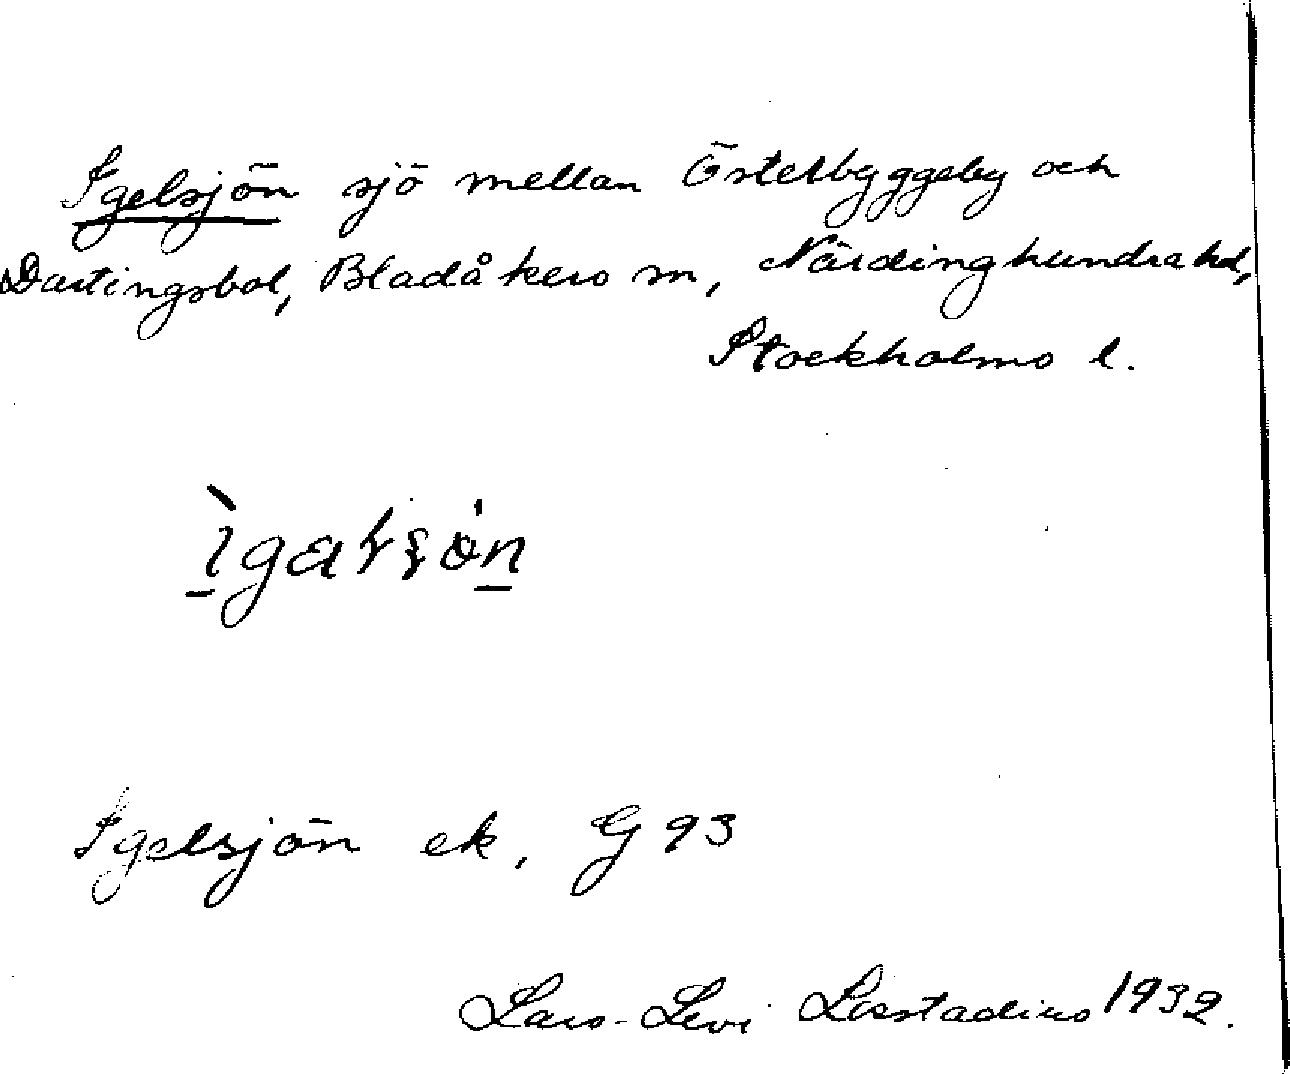 Igelsjön sjö mellan Österbyggeby och
Dartingsbol, Bladåkers sn, Närdinghundra hd,
Stockholms l.
Igelsjön ek. G 93
Lars-Levi Læstadius 1932.